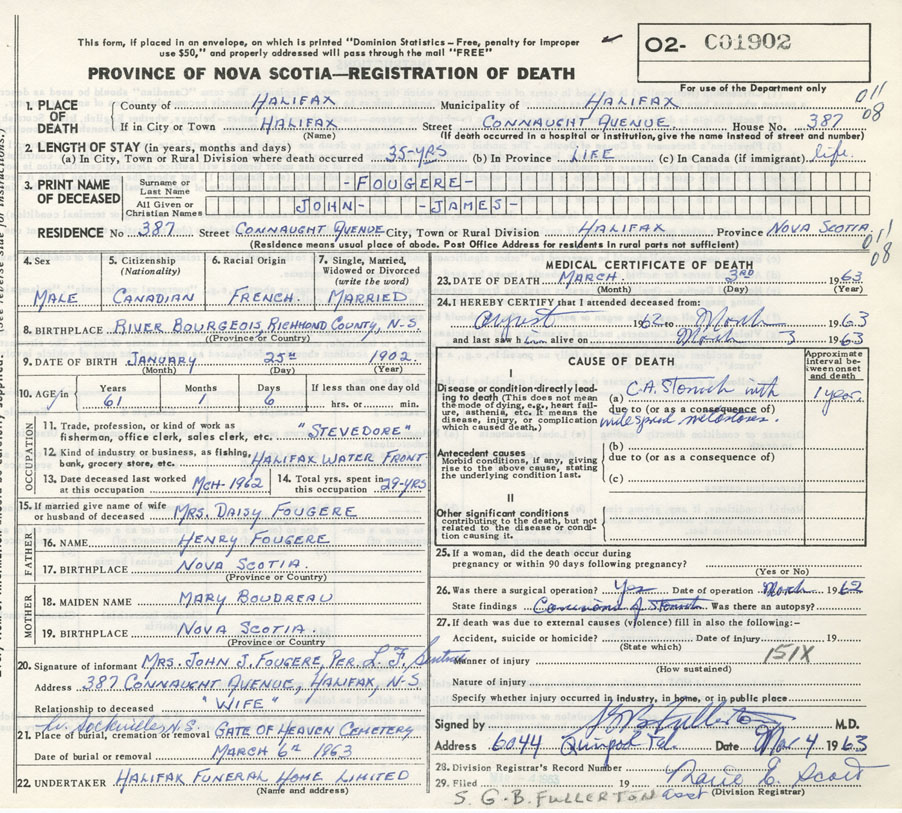 This form, if placed in an envelope, on which is printed "Dominion Statistics – Free, penalty for improper
use $50," and properly addressed will pass through the mail "FREE"
O2- C01902
PROVINCE OF NOVA SCOTIA—REGISTRATION OF DEATH
For use of the Department only
011
08
1. PLACE OF DEATH
County of HALIFAX Municipality of HALIFAX
If in City or Town HALIFAX Street CONNAUGHT AVENUE House No. 387
(Name) (If death occurred in a hospital or institution, give the name instead of street and number)
2. LENGTH OF STAY (in years, months and days)
(a) In City, Town or Rural Division where death occurred 35-YRS (b) In Province LIFE (c) In Canada (if immigrant) life.
3. PRINT NAME OF DECEASED
Surname or Last Name -FOUGERE-
All Given or Christian Names JOHN- -JAMES-
RESIDENCE No 387 Street CONNAUGHT AVENUE City, Town or Rural Division HALIFAX Province NOVA SCOTIA
(Residence means usual place of abode. Post Office Address for residents in rural parts not sufficient)
011
08
4. Sex 5. Citizenship (Nationality) 6. Racial Origin 7. Single, Married, Widowed or Divorced (write the word)
MALE CANADIAN FRENCH. MARRIED
8. BIRTHPLACE RIVER BOURGEOIS, RICHMOND COUNTY, N-S.
(Province or Country)
9. DATE OF BIRTH JANUARY 25th 1902
(Month) (Day) (Year)
10. AGE in Years Months Days If less than one day old
61 1 6 hrs. or min.
OCCUPATION
11. Trade, profession, or kind of work as
fisherman, office clerk, sales clerk, etc. "STEVEDORE"
12. Kind of industry or business, as fishing,
bank, grocery store, etc. HALIFAX WATER FRONT
13. Date deceased last worked at this occupation MCH-1962 14. Total yrs. spent in this occupation 29-YRS
15. If married give name of wife
or husband of deceased MRS. DAISY FOUGERE
FATHER
16. NAME HENRY FOUGERE
17. BIRTHPLACE NOVA SCOTIA.
(Province or Country)
MOTHER
18. MAIDEN NAME MARY BOUDREAU
19. BIRTHPLACE NOVA SCOTIA.
(Province or Country)
20. Signature of informant MRS. JOHN J. FOUGERE, PER. L. F.
Address 387 CONNAUGHT AVENUE, HALIFAX, N-S.
Relationship to deceased "WIFE"
Lr. Sackville, N.S.
21. Place of burial, cremation or removal GATE OF HEAVEN CEMETERY
Date of burial or removal MARCH 6th 1963
22. UNDERTAKER HALIFAX FUNERAL HOME LIMITED
(Name and address)
MEDICAL CERTIFICATE OF DEATH
23. DATE OF DEATH MARCH 3RD 1963
(Month) (Day) (Year)
24. I HEREBY CERTIFY that I attended deceased from:
August 1962 to March 1963
and last saw him alive on March 3 1963
CAUSE OF DEATH
Approximate interval between onset and death
I
Disease or condition directly leading to death (This does not mean the mode of dying, e.g., heart failure, asthenia, etc. It means the disease, injury, or complication which caused death.)
(a) C.A. Stomach with 1 year
due to (or as a consequence of)
widespread metastases.
Antecedent causes
Morbid conditions, if any, giving rise to the above cause, stating the underlying condition last.
(b)
due to (or as a consequence of)
(c)
II
Other significant conditions
contributing to the death, but not related to the disease or condition causing it.
25. If a woman, did the death occur during
pregnancy or within 90 days following pregnancy?
(Yes or No)
26. Was there a surgical operation? Yes Date of operation March 1962
State findings Carcinoma of Stomach Was there an autopsy?
27. If death was due to external causes (violence) fill in also the following:-
Accident, suicide or homicide? Date of injury 19
(State which)
151X
Manner of injury
(How sustained)
Nature of injury
Specify whether injury occurred in industry, in home, or in public place
Signed by S G B Fullerton M.D.
Address 6044 Quinpool Rd. Date Mar 4 1963
28. Division Registrar's Record Number
29. Filed 19 Marie E. Scott
S. G. B. FULLERTON asst (Division Registrar)